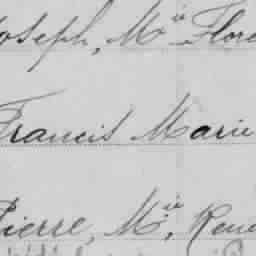 Joseph, Mie Flore
Francis Marie
Pierre, Mie, René